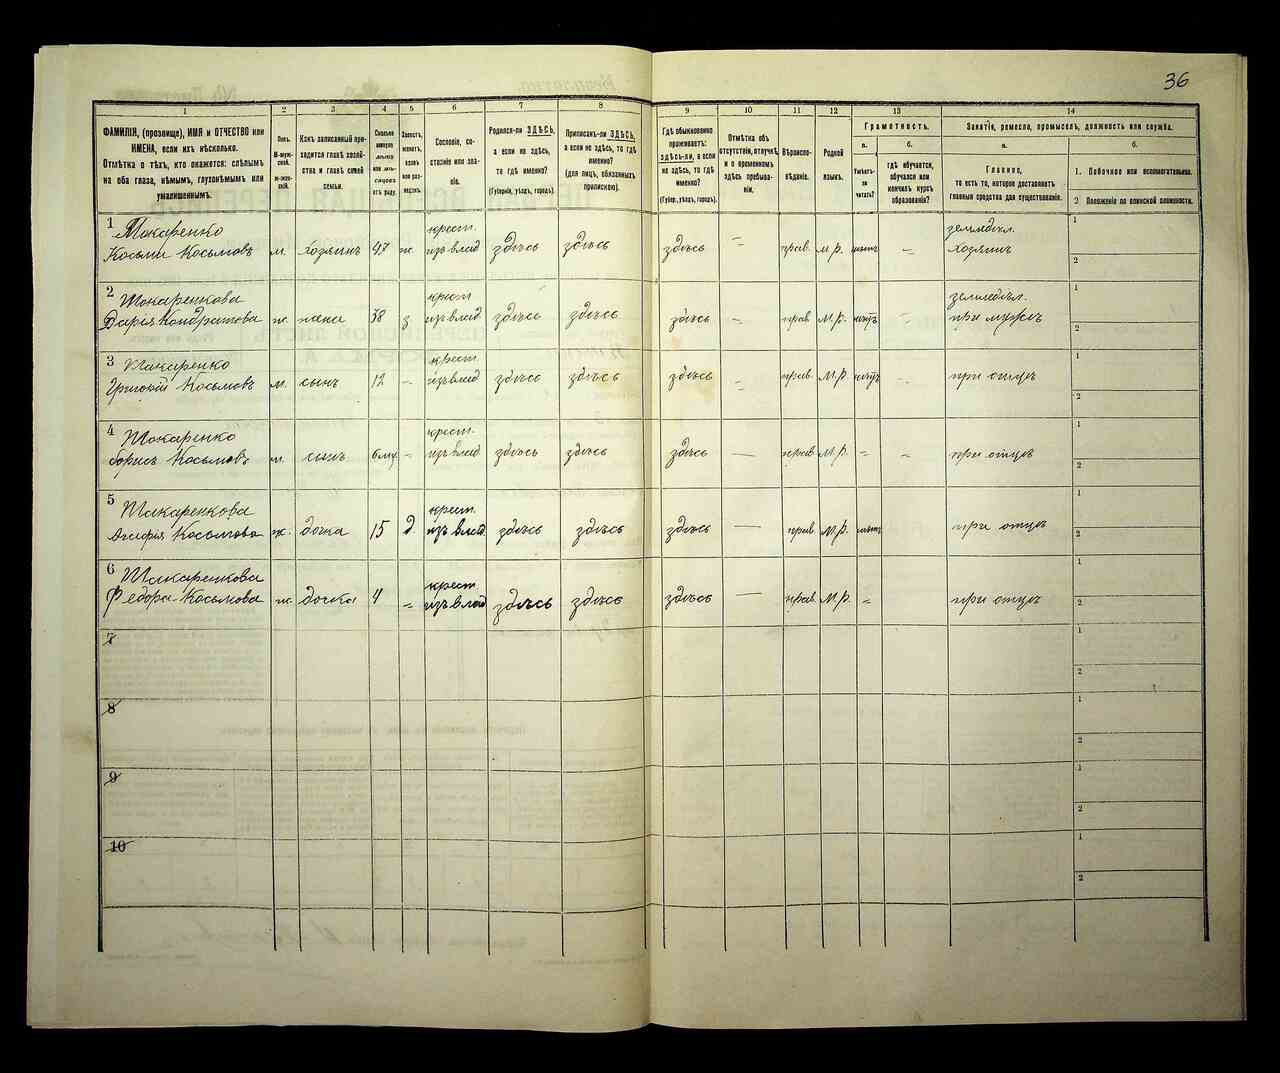 36
1
2
3
4
5
6
7
8
9
10
11
12
13
14
ФАМИЛІЯ, (прозвище), ИМЯ и ОТЧЕСТВО или
ИМЕНА, если ихъ нѣсколько.
Отмѣтка о тѣхъ, кто окажется: слѣпымъ
на оба глаза, нѣмымъ, глухонѣмымъ или
умалишеннымъ.
Полъ.
М-муж-
ской.
Ж-жен-
скій.
Какъ записанный при-
ходится главѣ хозяй-
ства и главѣ своей
семьи.
Сколько
минуло
лѣтъ
или мѣ-
сяцевъ
отъ роду.
Холостъ,
женатъ,
вдовъ
или раз-
веденъ.
Сословіе, со-
стояніе или зва-
ніе.
Родился-ли ЗДѢСЬ,
а если не здѣсь,
то гдѣ именно?
(Губернія, уѣздъ, городъ).
Приписанъ-ли ЗДѢСЬ,
а если не здѣсь, то гдѣ
именно?
(для лицъ, обязанныхъ
припискою).
Гдѣ обыкновенно
проживаетъ:
здѣсь-ли, а если
не здѣсь, то гдѣ
именно?
(Губер., уѣздъ, городъ).
Отмѣтка объ
отсутствіи, отлучкѣ
и о временномъ
здѣсь пребыва-
ніи.
Вѣроиспо-
вѣданіе.
Родной
языкъ.
Грамотность.
а.
б.
Умѣетъ-
ли
читать?
гдѣ обучается,
обучался или
кончилъ курсъ
образованія?
Занятіе, ремесло, промыселъ, должность или служба.
а.
б.
Главное,
то есть то, которое доставляетъ
главныя средства для существованія.
1. Побочное или вспомогательное.
2 Положеніе по воинской повинности.
1 Макаренко крест. земледѣл. 1
Косьми Косьмовъ м. хозяинъ 47 ж. изъ влад здѣсь здѣсь здѣсь – прав. М.Р. нѣтъ – хозяинъ
2
2 Макаренкова крест. земледѣл. 1
Дарія Кондратова ж. жена 38 з изъ влад здѣсь здѣсь здѣсь – прав. М.Р. нѣтъ – при мужѣ
2
3 Макаренко крест. 1
Григорій Косьмовъ м. сынъ 12 – изъ влад здѣсь здѣсь здѣсь – прав. М.Р. нѣтъ – при отцѣ
2
4 Макаренко крест. 1
Борисъ Косьмовъ м. сынъ изъ влад здѣсь здѣсь здѣсь — прав. М.Р. – – при отцѣ
2
5 Макаренкова крест. 1
Косьмова ж. дочка 15 д изъ влад здѣсь здѣсь здѣсь — прав. М.Р. нѣтъ при отцѣ
2
6 Макаренкова крест. 1
Федора Косьмова ж. дочка 4 – изъ влад здѣсь здѣсь здѣсь — прав. М.Р. – при отцѣ
2
7 1
2
8 1
2
9 1
2
10 1
2